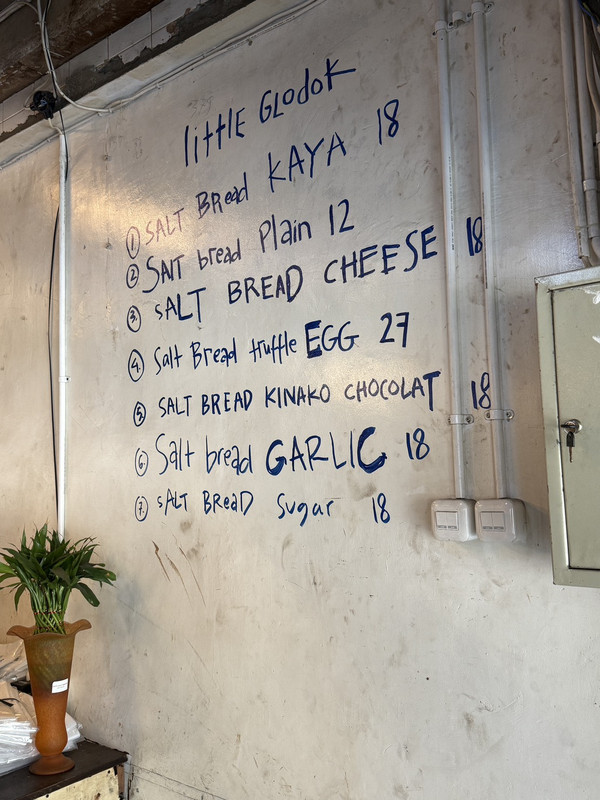 little Glodok
① SALT Bread KAYA 18
② SAlT bread Plain 12
③ sALT BREAD CHEESE 18
④ Salt Bread truffle EGG 27
⑤ SALT BREAD KINAKO CHOCOLAT 18
⑥ Salt bread GARLIC 18
⑦ sALT BReaD sugar 18